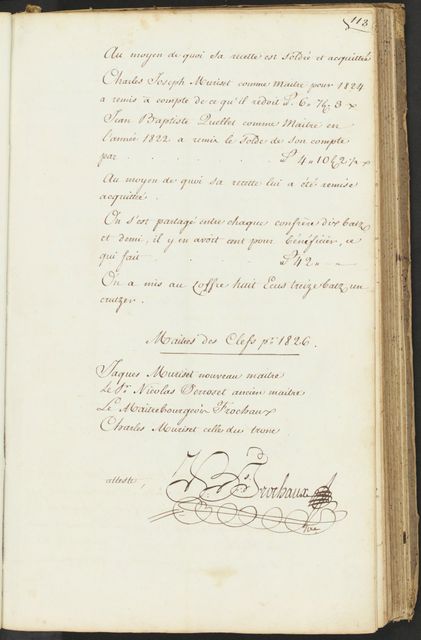 113
Au moyen de quoi sa recette est soldée et acquittée
Charles Joseph Muriset comme Maitre pour 1824
a remis à compte de ce qu'il redoit
Jean Baptiste Quellet comme Maitre en
l'année 1822 a remis le solde de son compte
par
Au moyen de quoi sa recette lui a été remise
acquittée.
On s'est partagé entre chaque confrère dix batz
et demi, il y en avoit cent pour bénéficier, ce
qui fait 42
On a mis au coffre huit Ecus treize batz un
cruitzer.
Maitres des Clefs pr. 1826.
Jaques Muriset nouveau maitre
Le Sr. Nicolas Perroset ancien maitre
Le Maitrebourgeois Frochaux
Charles Muriset celle du tronc
atteste, Frochaux